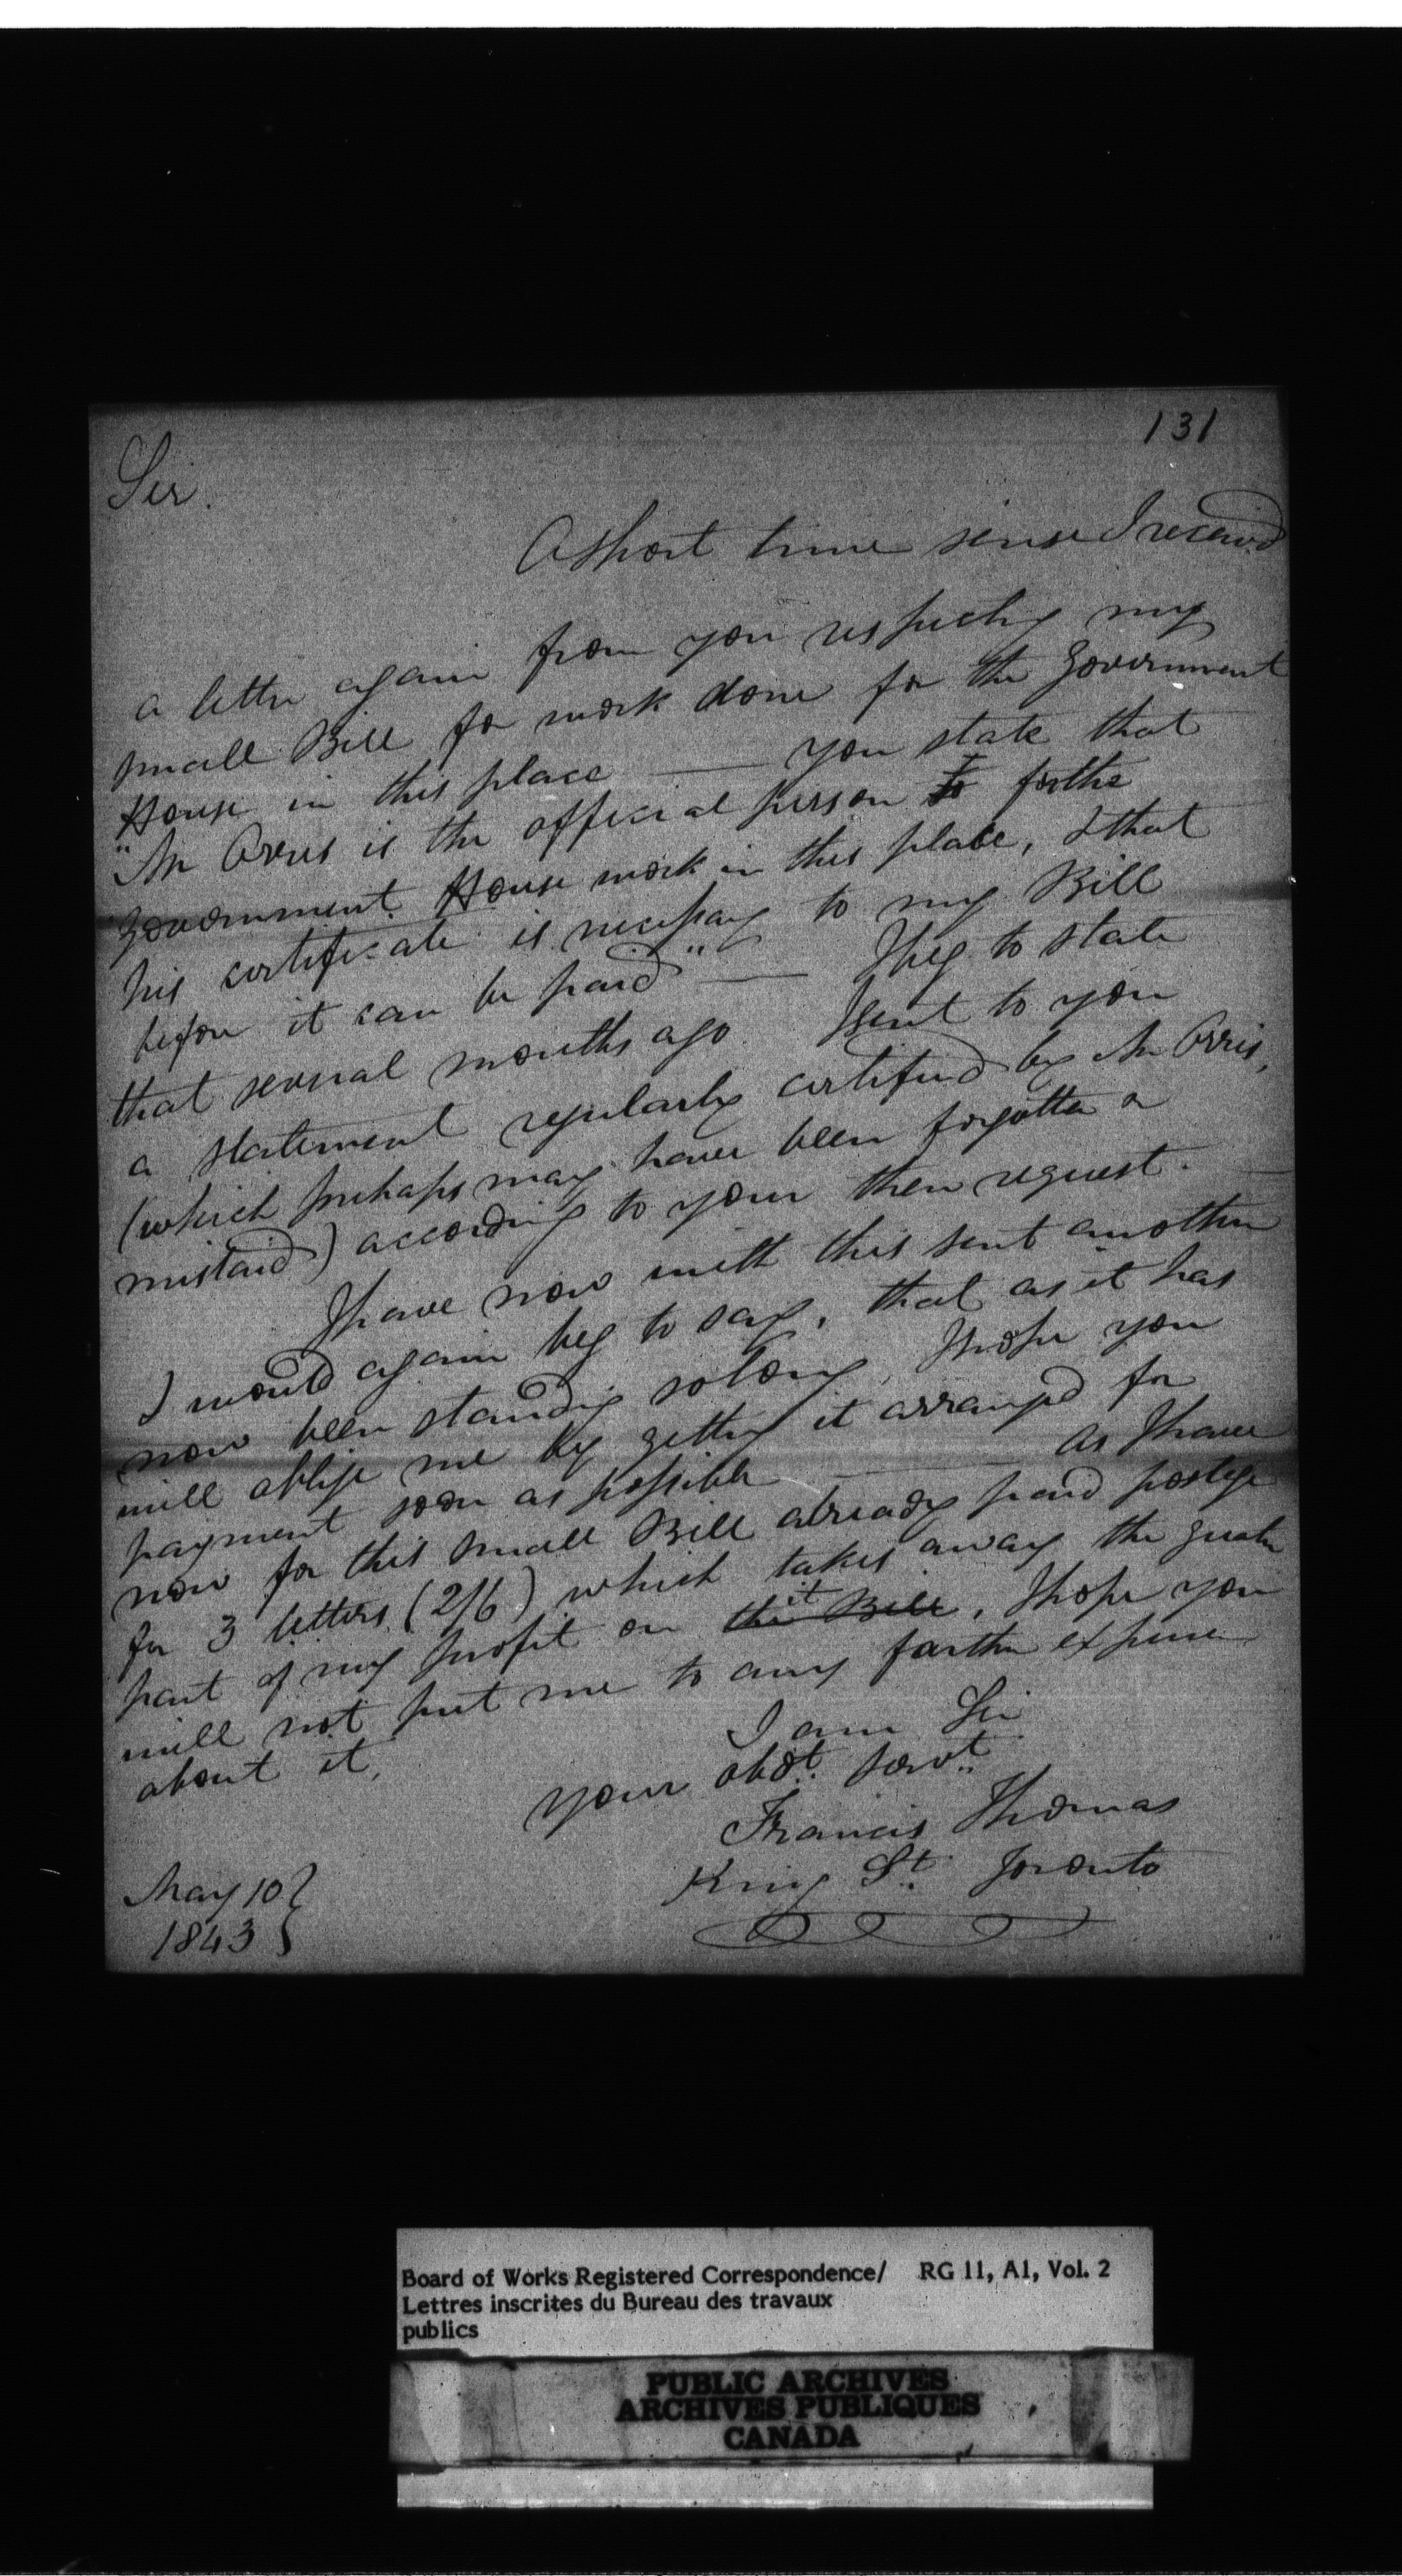 131
Sir.
A short time sense I receiv'd
a letter again from you respecting my
small Bill for work done for the Government
House in this place — you state that
"Mr Orris is the official person to for the
Government House work in this place, & that
his certificate is necessary to my Bill
before it can be paid" — I beg to state
that several months ago I sent to you
a statement regularly certified by Mr Orris,
(which perhaps may have been forgotten or
mislaid) according to your then request. —
I have now with this sent another
I would again beg to say, that as it has
now been standing so long, I hope you
will oblige me by getting it arranged for
payment soon as possible — as I have
now for this small Bill already paid postage
for 3 letters (2/6) which takes away the greater
part of my profit on the Bill it, I hope you
will not put me to any farther expense
about it,
I am Sir
your obdt. servt.
Francis Thomas
King St. Toronto
May 10
1843
Board of Works Registered Correspondence/ RG 11, A1, Vol. 2
Lettres inscrites du Bureau des travaux
publics
PUBLIC ARCHIVES
ARCHIVES PUBLIQUES
CANADA